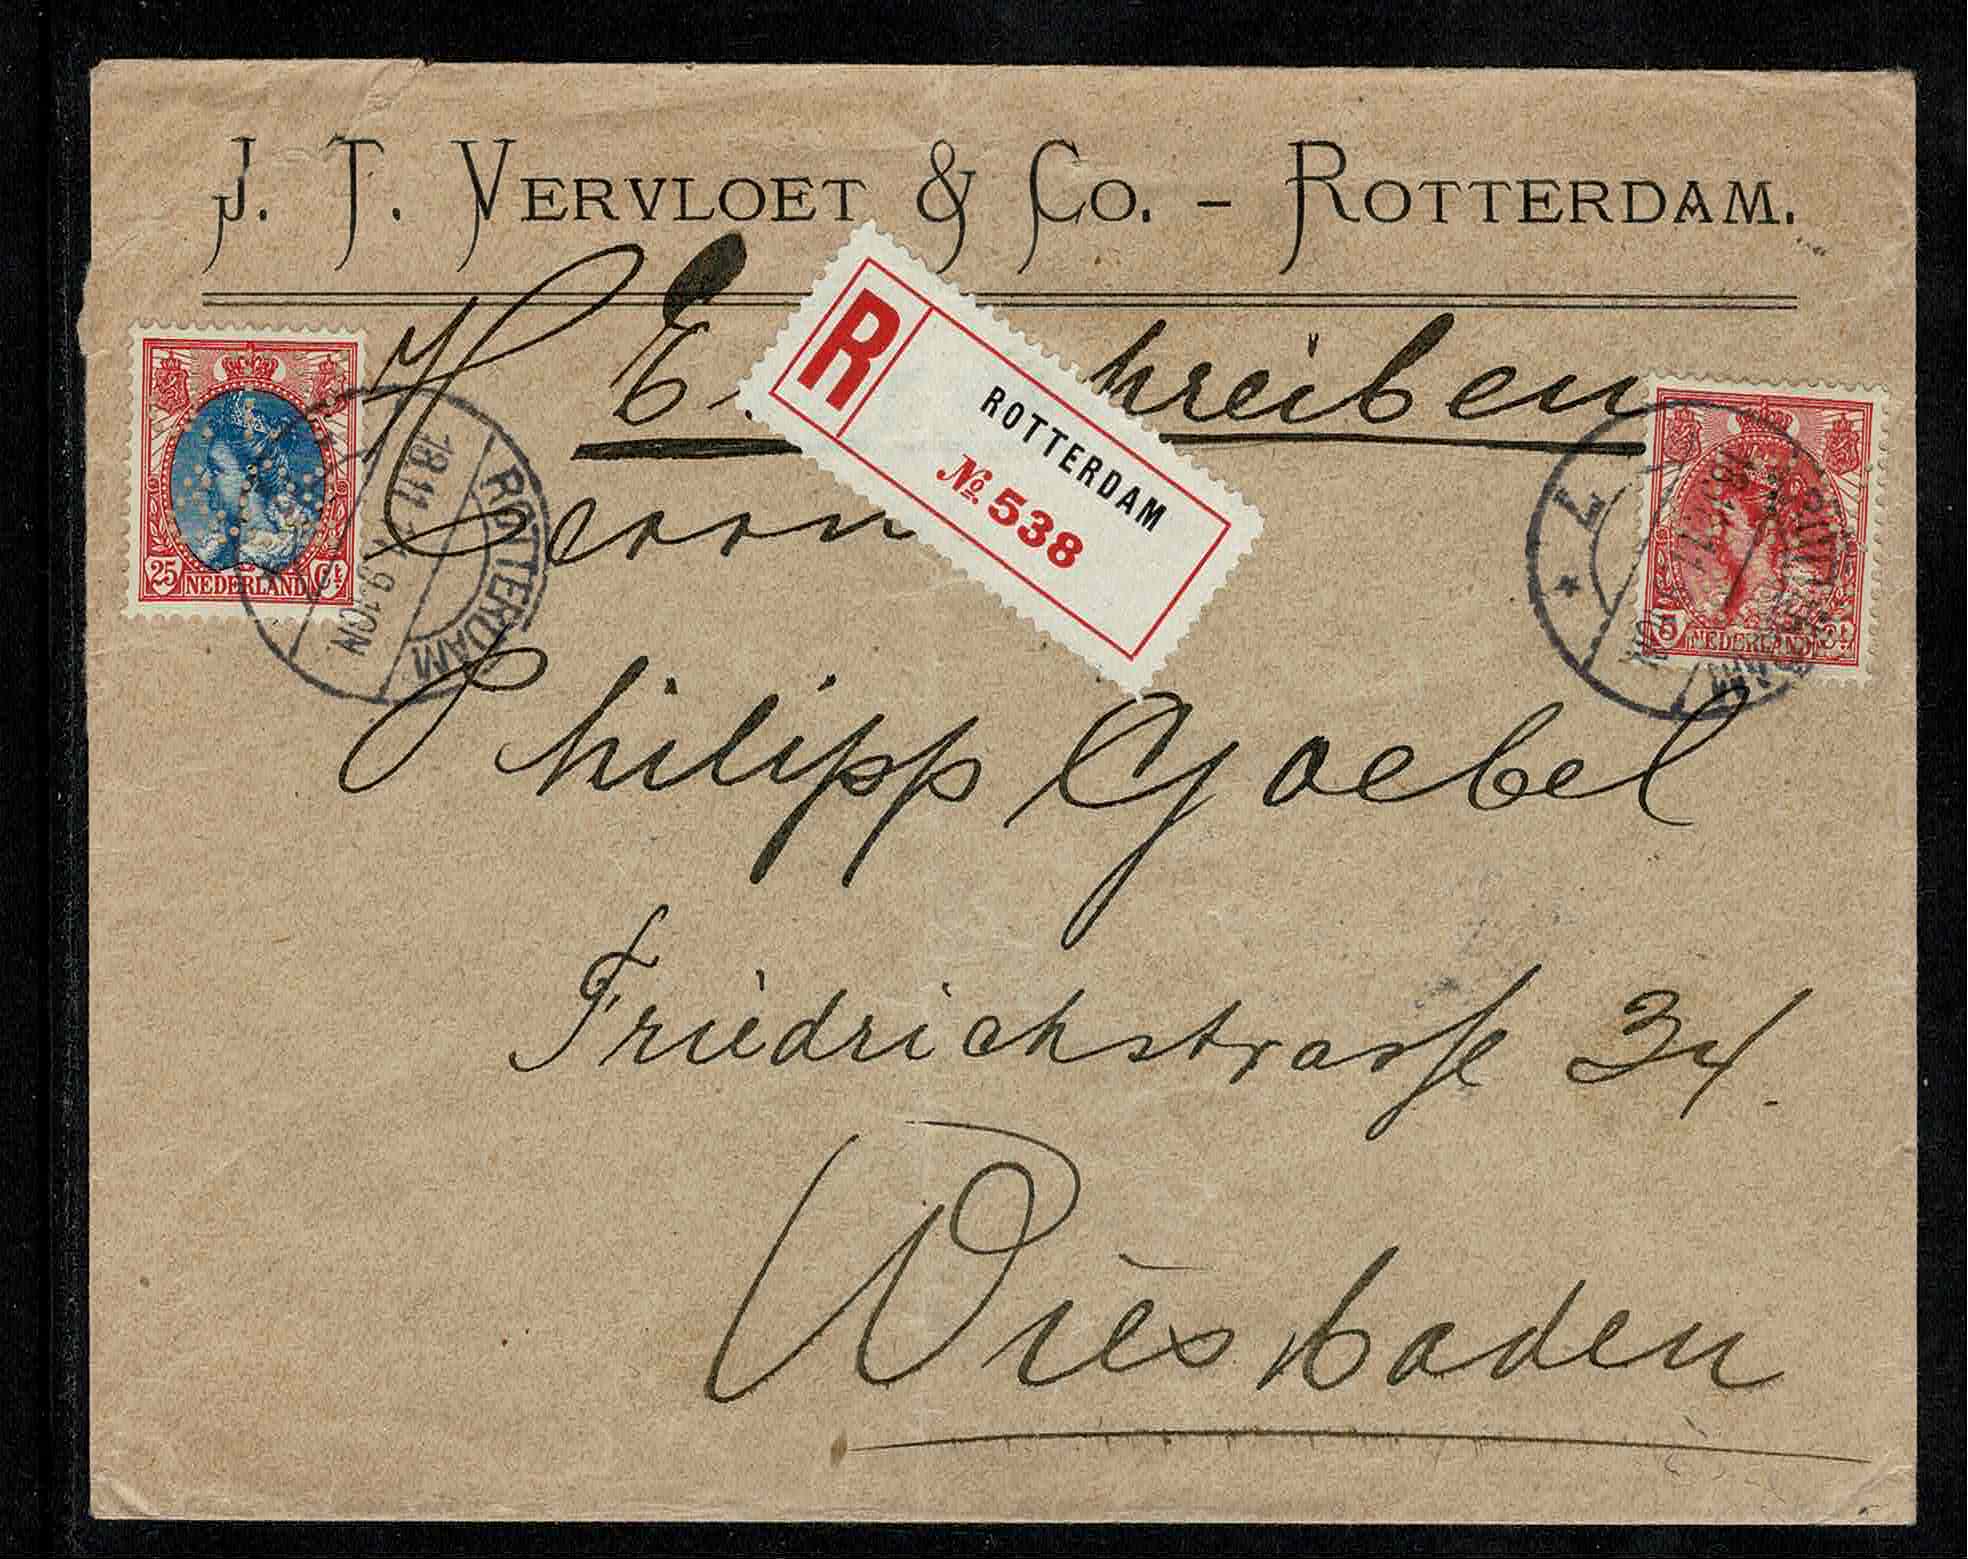 J. T. VERVLOET & Co. - ROTTERDAM.
hreiben
R
ROTTERDAM
No. 538
Herrn
25 NEDERLAND Ct
ROTTERDAM
18.11
9.10N
5 NEDERLAND Ct
7
Philipp Goebel
Friedrichstrasse 34.
Wiesbaden